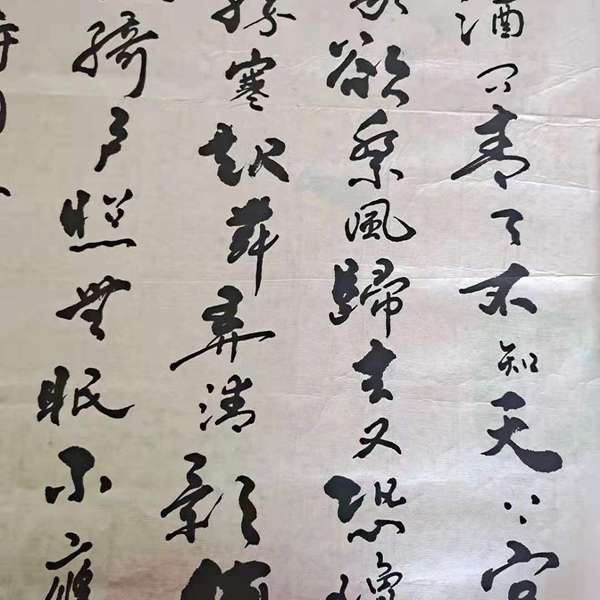 酒問青天不知天上宫
我欲乘風歸去又恐瓊
勝寒起舞弄清影何
綺户照無眠不應